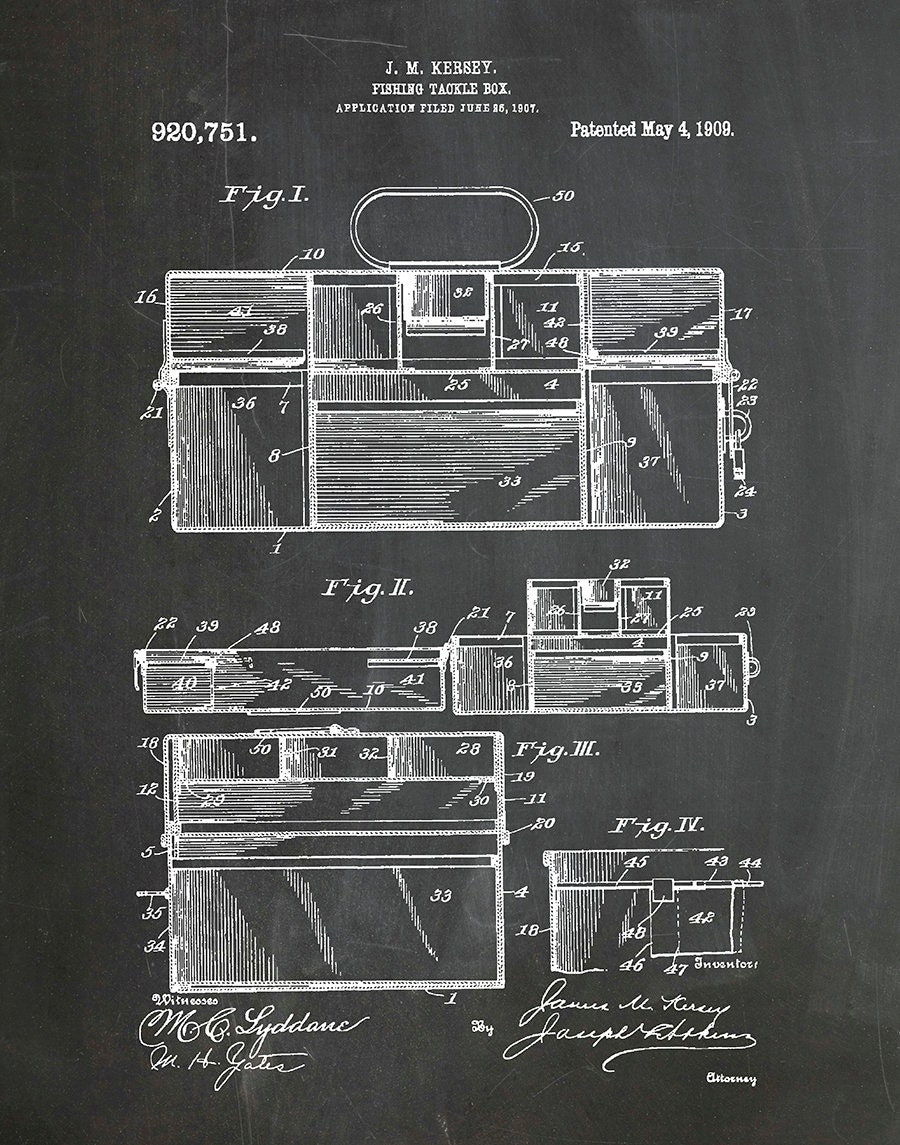 J. M. KERSEY.
FISHING TACKLE BOX.
APPLICATION FILED JUNE 26, 1907.
920,751.
Patented May 4, 1909.
Fig. I.
50
10
15
16
41
38
26
32
11
42
27
48
39
17
21
36
7
25
4
22
23
8
33
9
37
24
2
1
3
Fig. II.
32
11
26
27
25
22
39
48
38
21
7
4
9
23
36
8
33
37
40
42
41
50
10
3
Fig. III.
18
50
31
32
28
19
12
29
30
11
20
5
33
4
35
34
1
Fig. IV.
45
43
44
18
48
42
46
47
Witnesses
Inventor:
M. C. Lyddane
James M. Kersey
By
M. H. Yates
Attorney